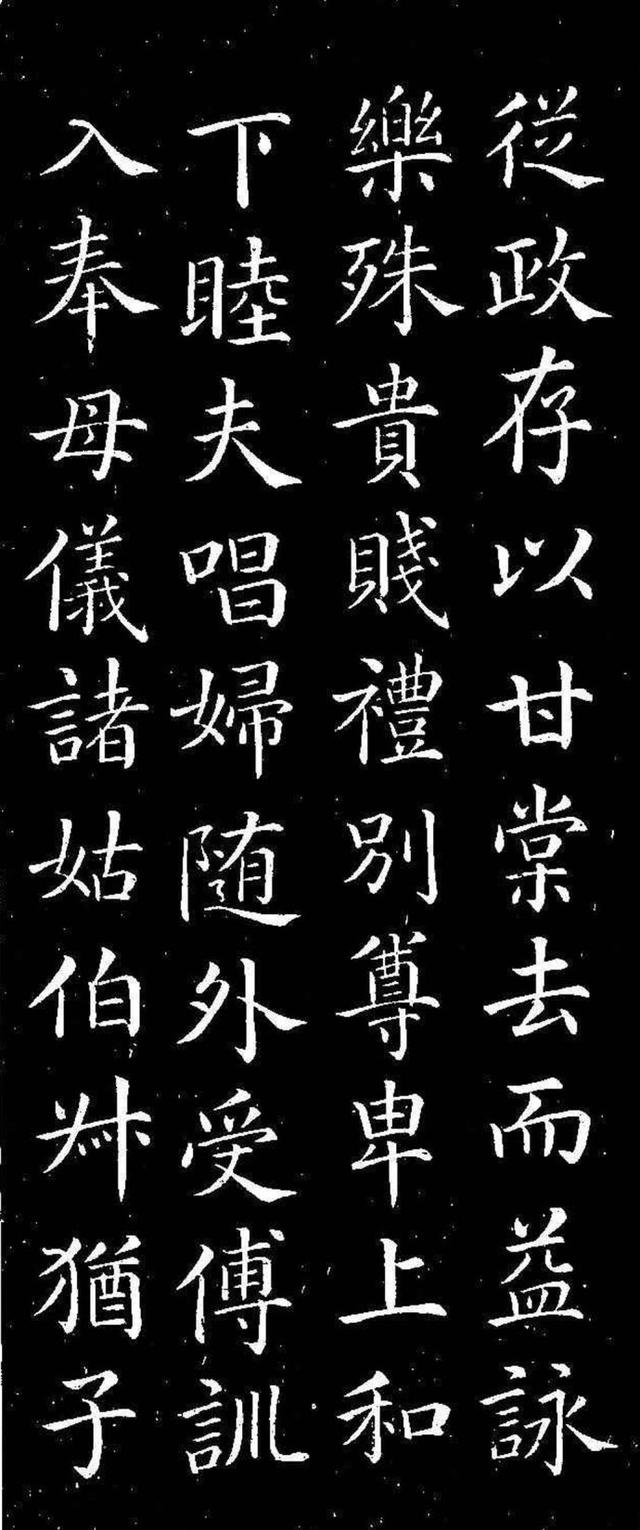 従政存以甘棠去而益詠
樂殊貴賤禮別尊卑上和
下睦夫唱婦随外受傅訓
入奉母儀諸姑伯叔猶子